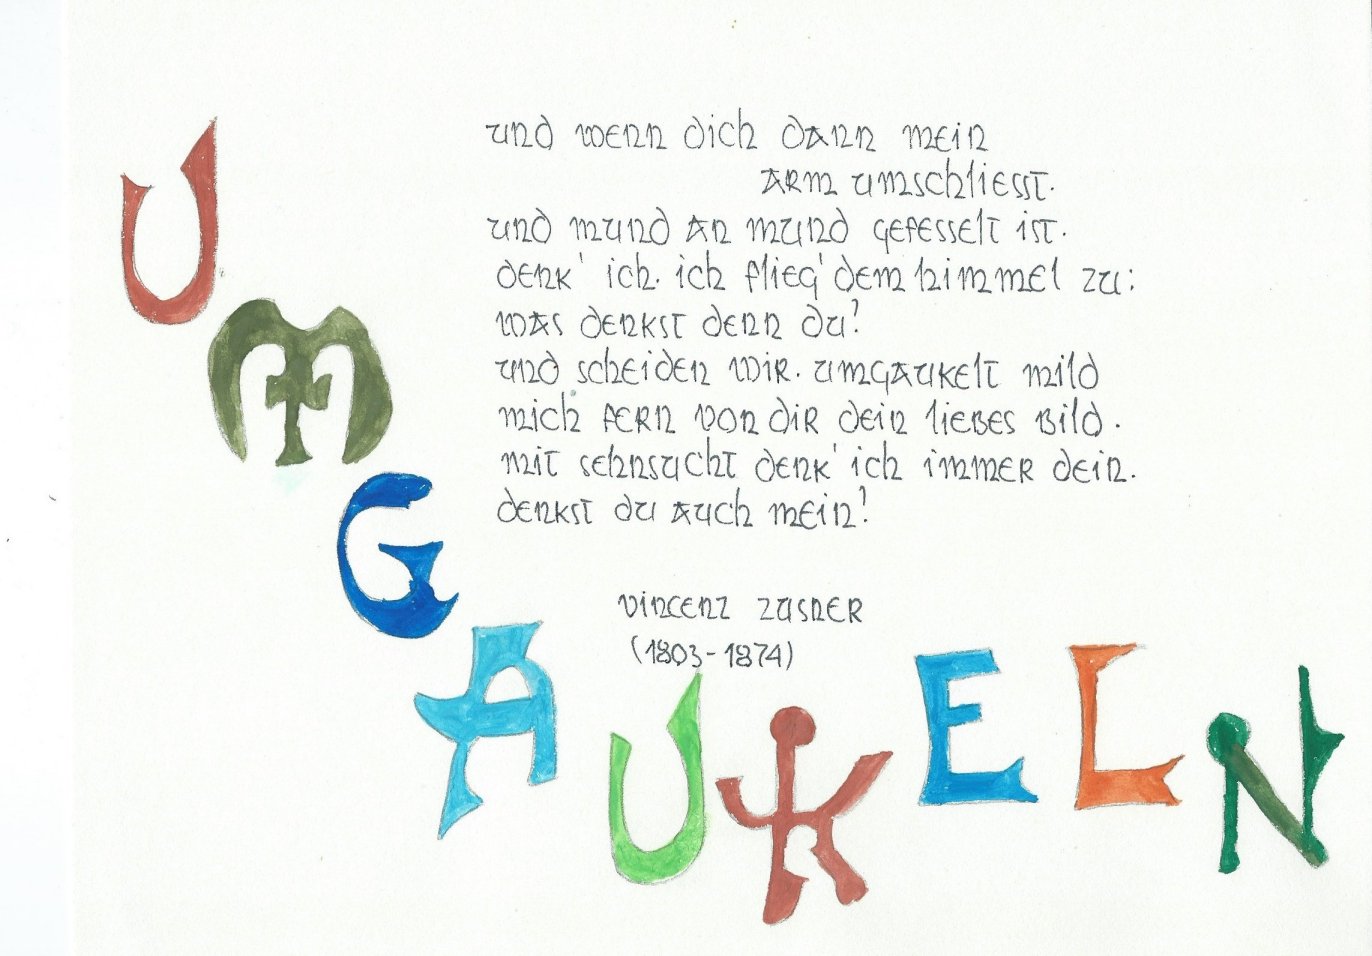 und wenn dich dann mein
arm umschliesst.
und mund an mund gefesselt ist.
denk' ich. ich flieg' dem himmel zu:
was denkst denn du?
und scheiden wir. umgaukelt mild
mich fern von dir dein liebes bild.
mit sehnsucht denk' ich immer dein.
denkst du auch mein?
vincenz zusner
(1803-1874)
UMGAUKELN